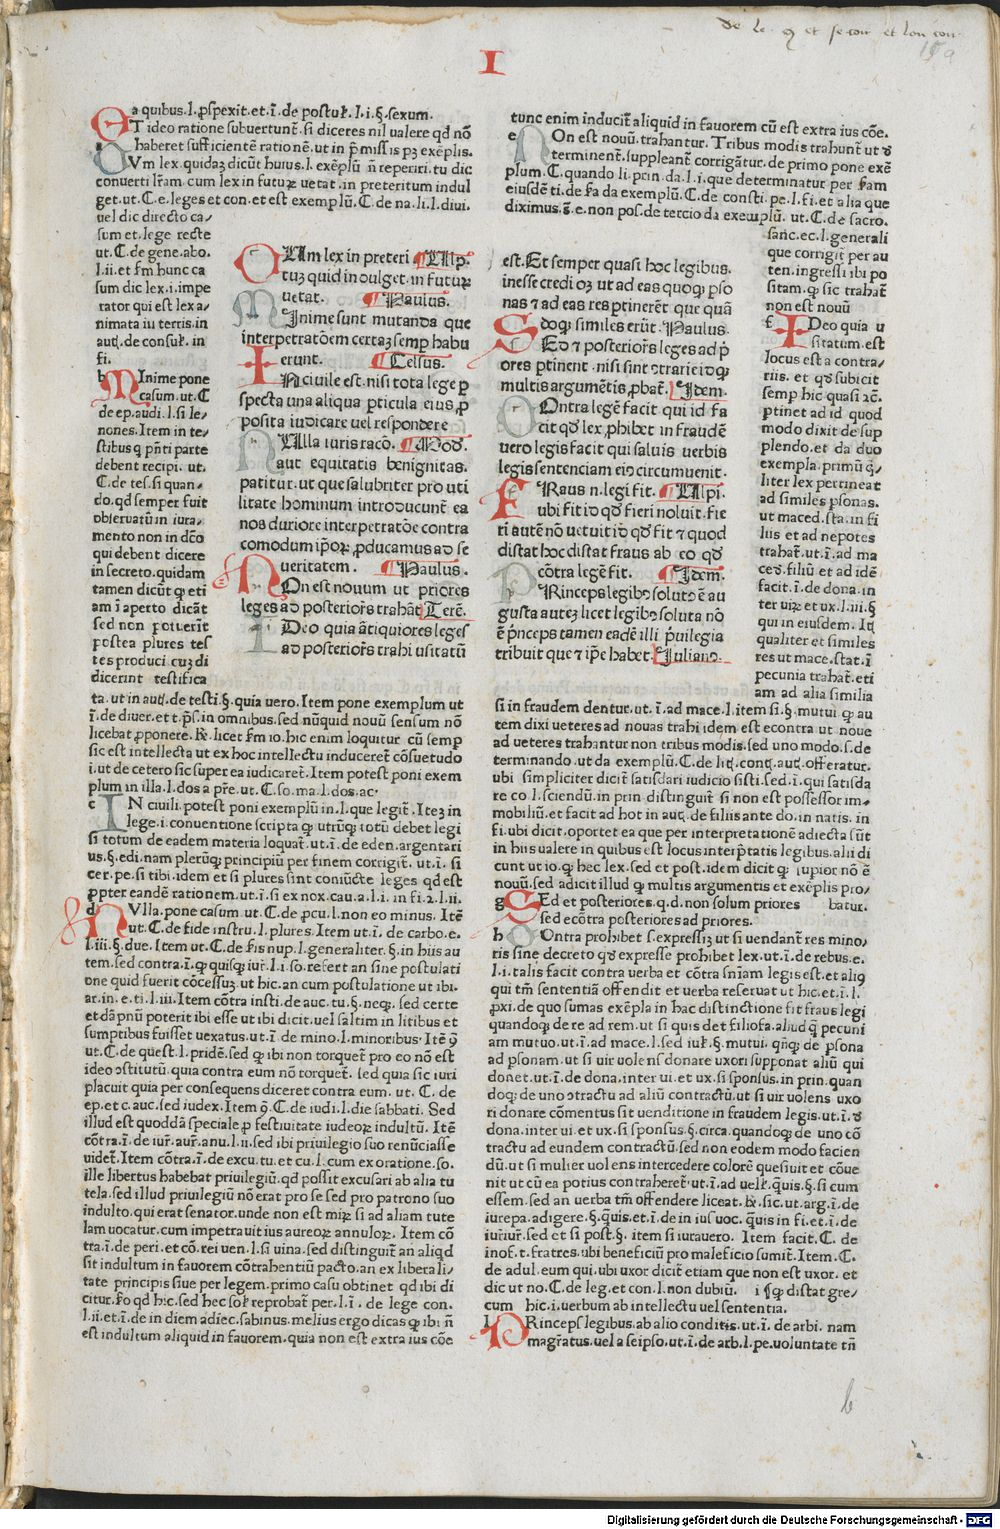 de le. ꝯ et se con et lon con
I
ea quibus.l.ꝓspexit.et.ī.de postuł.l.i.§.sexum.
ET ideo ratione subuertunt̄.si diceres nil ualere qđ nō
haberet sufficientē rationē.ut in p̄missis pꝫ exēplis.
CVm lex.quidaꝫ dicūt huius.l.exēplū n̄ reperiri.tu dic
conuerti lr̄am.cum lex in futuꝝ uetat.in preteritum indul
get.ut.C.e.leges et con.et est exemplū.C.de na.li.l.diui.
uel dic directo ca/
sum et lege recte
ut.C.de gene.abo.
l.ii.et ẜm hunc ca
sum dic lex.i.impe
rator qui est lex a/
nimata iu terris.in
aut̄.de consuł.in
fi.
b MInime pone
casum.ut.C
de ep.audi.l.si le/
nones.Item in te/
stibus ꝙ pn̄ti parte
debent recipi.ut.
C.de tes.si quan/
do.qđ semper fuit
obseruatū in iura/
mento non in dc̄o
qui debent dicere
in secreto.quidam
tamen dicūt ꝙ eti
am ī aperto dicāt
sed non potuerīt
postea plures tes
tes produci cuꝫ di
dicerint testifica
ta.ut in aut̄.de testi.§.quia uero.Item pone exemplum ut
ī.de diuer.et t.p̄s.in omnibus.sed nūquid nouū sensum nō
licebat ꝓponere.ꝶ.licet ẜm io.hic enim loquitur cū semꝑ
sic est intellecta ut ex hoc intellectu induceret̄ cōsuetudo
i.ut de cetero sic super ea iudicaret̄.Item potest poni exem
plum in illa.l.dos a pr̄e.ut.C.so.ma.l.dos.ac̓
c IN ciuili.potest poni exemplū in.l.que legit̄.Iteꝫ in
lege.i.conuentione scripta ꝙ utrūqꝫ totū debet legi
si totum de eadem materia loquat̄.ut.ī.de eden.argentari
us.§.edi.nam plerūqꝫ principiū per finem corrigit̄.ut.ī.si
cer.pe.si tibi.idem et si plures sint coniūcte leges qđ est
ꝓpter eandē rationem.ut.ī.si ex nox.cau.a.l.i.in fi.2.l.ii.
d NVlla.pone casum.ut.C.de ꝓcu.l.non eo minus.Itē
ut.C.de fide instru.l.plures.Item ut.ī.de carbo.e.
l.iii.§.due.Item ut.C.de ẜis nup.l.generaliter.§.in hiis au
tem.sed contra.ī.ꝙ quisqꝫ iur̄.l.i.so.refert an sine postulati
one quid fuerit cōcessuꝫ.ut hic.an cum postulatione ut ibi.
ar.in.e.ti.l.iii.Item cōtra insti.de auc.tu.§.neqꝫ.sed certe
et dāpnū poterit ibi esse ut ibi dicit.uel saltim in litibus et
sumptibus fuisset uexatus.ut.ī.de mino.l.minoribus.Itē ꝯ̄
ut.C.de quest.l.pridē.sed ꝙ ibi non torquet̄ pro eo nō est
ideo ꝯstitutū.quia contra eum nō torquet̄. sed quia sic iuri
placuit quia per consequens diceret contra eum.ut.C.de
ep.et c.auc.sed iudex.Item ꝯ̄.C.de iudi.l.die sabbati. Sed
illud est quoddā speciale ꝑ festiuitate iudeoꝝ indultū. Itē
cōtra.ī.de iur̄.aur̄.anu.l.ii.sed ibi priuilegio suo renūciasse
uidet̄.Item cōtra.ī.de excu.tu.et cu.l.cum ex oratione.so.
ille libertus habebat priuilegiū.qđ possit excusari ab alia tu
tela.sed illud priuilegiū nō erat pro se sed pro patrono suo
indulto.qui erat senator.unde non est miꝝ si ad aliam tute
lam uocatur.cum impetrauit ius aureoꝝ annuloꝝ. Item cō
tra.ī.de peri.et cō.rei uen.l.si uina.sed distinguit̄ an aliqđ
sit indultum in fauorem cōtrahentiū pacto.an ex liberali/
tate principis siue per legem.primo casu obtinet qđ ibi di
citur.ẜo qđ hic.sed hec soł reprobat̄ per.l.ī. de lege con.
l.ii.et.ī.de in diem adiec.sabinus.melius ergo dicas ꝙ ibi n̄
est indultum aliquid in fauorem.quia non est extra ius cōe
CUm lex in preteri Ulp.
tuꝫ quid indulget.in futuꝝ
uetat. Paulus.
MInime sunt mutanda que
interpetratōem certaꝫ semꝑ habu
erunt. Celsus.
IN ciuile est.nisi tota lege ꝑ
specta una aliqua ꝑticula eius ꝓ
posita iudicare uel respondere
NUlla iuris racō. Mod.
aut equitatis benignitas.
patitur.ut que salubriter pro uti
litate hominum introducunt̄ ea
nos duriore interpetratōe contra
comodum ip̄oꝝ ꝓducamus ad se
ueritatem. Paulus.
NOn est nouum ut priores
leges ad posterior̄s trahāt̄ Tere.
IDeo quia ātiquiores leges
ad posterior̄s trahi usitatū
tunc enim inducit̄ aliquid in fauorem cū est extra ius cōe.
e NOn est nouū.trahantur.Tribus modis trahunt̄ ut đ
terminent̄.suppleant̄ corrigāt̄ur.de primo pone exē
plum.C.quando li.prin.da.l.i.que determinatur per ẜam
eiusdē ti.de ẜa da exemplū.C.de consti.pe.l.fi.et alia que
diximus.s̄.e.non pos.de tercio da exemplū.ut.C.de sacro.
sanc.ec.l.generali
que corrigit̄ per au
ten.ingressi ibi po
sitam.ꝙ sic trahat̄
non est nouū
f IDeo quia u
sitatum.est
locus est a contra/
riis.et qđ subicit
semꝑ hic quasi ac̄.
ptinet ad id quod
modo dixit de sup
plendo.et da duo
exempla.primū q̄/
liter lex pertineat
ad similes ꝑsonas.
ut maced.sta.in fi
liis et ad nepotes
trahat̄.ut.ī.ad ma
ced.filiū et ad idē
facit.ī.de dona.in
ter uiꝝ et ux.l.iii.§
qui in eiusdem.Itꝫ
qualiter et similes
res ut mace.stat.ī
pecunia trahat̄.eti
am ad alia similia
si in fraudem dentur.ut.ī.ad mace.l.item si.§.mutui ꝙ au
tem dixi ueteres ad nouas trahi idem est econtra ut noue
ad ueteres trahantur non tribus modis.sed uno modo.s.de
terminando.ut da exemplū.C.de litꝫ.contꝫ.autꝫ.offeratur.
ubi simpliciter dicit̄ satisdari iudicio sisti.sed.ī.qui satisda
re co.l.sciendū.in prin.distinguit̄ si non est possessor im/
mobiliū.et facit ad hot in autꝫ.de filiis ante do.in natis.in
fi.ubi dicit̄.oportet ea que per interpretationē adiecta sūt
in hiis ualere in quibus est locus interp̄tatis legibus.alii di
cunt ut io.ꝙ hec lex.sed et post.idem dicit ꝙ supior nō ē
nouū.sed adicit illud ꝙ multis argumentis et exēplis pro/
batur.
g SEd et posteriores.q.d.non solum priores
sed econtra posteriores ad priores.
h COntra prohibet s.expressiꝫ ut si uendant̄ res mino/
ris sine decreto qđ expresse prohibet lex.ut.ī.de rebus.e.
l.i.talis facit contra uerba et cōtra sn̄iam legis est.et aliꝗ
qui tm̄ sententiā offendit et uerba reseruat ut hic.et.ī.l.
ꝓxi.de quo sumas exēpla in hac distinctione fit fraus legi
quandoqꝫ de re ad rem.ut si quis det filiofa.aliud ꝙ pecuni
am mutuo.ut.ī.ad mace.l.sed iuł.§.mutui.qn̄qꝫ de ꝑsona
ad ꝑsonam.ut si uir uolens donare uxori supponat aliū qui
donet.ut.ī.de dona.inter ui.et ux.si sponsus.in prin.quan
doqꝫ de uno ꝯtractu ad aliū contractū.ut si uir uolens uxo
ri donare cōmentus sit uenditione in fraudem legis.ut.ī.đ
dona.inter ui et ux.si sponsus.§.circa.quandoqꝫ de uno cō
tractu ad eundem contractū.sed non eodem modo facien
dū.ut si mulier uolens intercedere colorē quesiuit et cōue
nit ut cū ea potius contraheret̄.ut.ī.ad ueł.quis.§.si cum
essem.sed an uerba tm̄ offendere liceat.ꝶ.sic.ut arg.ī.de
iurepa.adigere.§.quis.et.ī.de in ius uoc.quis in fi.et.ī.de
iur̄iur̄.sed et si post.§.item si iurauero. Item facit.C.de
inof.t.fratres.ubi beneficiū pro maleficio sumit̄.Item.C.
de adul.eum qui.ubi uxor dicit̄ etiam que non est uxor.et
dic ut no.C.de leg.et con.l.non dubiū. i sqꝫ distat gre/
cum hic.i.uerbum ab intellectu uel sententia.
PRinceps legibus.ab alio conditis.ut.ī.de arbi.nam
magr̄atus.uel a seipso.ut.ī.de arb.l.pe.uoluntate tn̄
est.Et semper quasi hoc legibus.
inesse credi oꝫ ut ad eas quoqꝫ ꝑso
nas ⁊ ad eas res ꝑtinerēt que quā
doqꝫ similes erūt. Paulus.
SEd ⁊ posterior̄s leges ad p̄
ores ꝑtinent.nisi sint ꝯtrarie idqꝫ
multis argumētis ꝓbat̄. Idem.
COntra legē facit qui id fa
cit qđ lex ꝓhibet in fraudē
uero legis facit qui saluis uerbis
legis sentenciam eiꝯ circumuenit.
FRaus n̄.legi fit. Ulpi.
ubi fit id qđ fieri noluit.fie
ri autē nō uetuit id qđ fit ⁊ quod
distat hoc distat fraus ab eo qđ
cōtra legē fit. Idem.
PRinceps legibꝯ solutꝯ ē au
gusta auteꝫ licet legibꝯ soluta nō
ē p̄nceps tamen eadē illi p̄uilegia
tribuit que ⁊ ip̄e habet. Juliano.
b
Digitalisierung gefördert durch die Deutsche Forschungsgemeinschaft - DFG